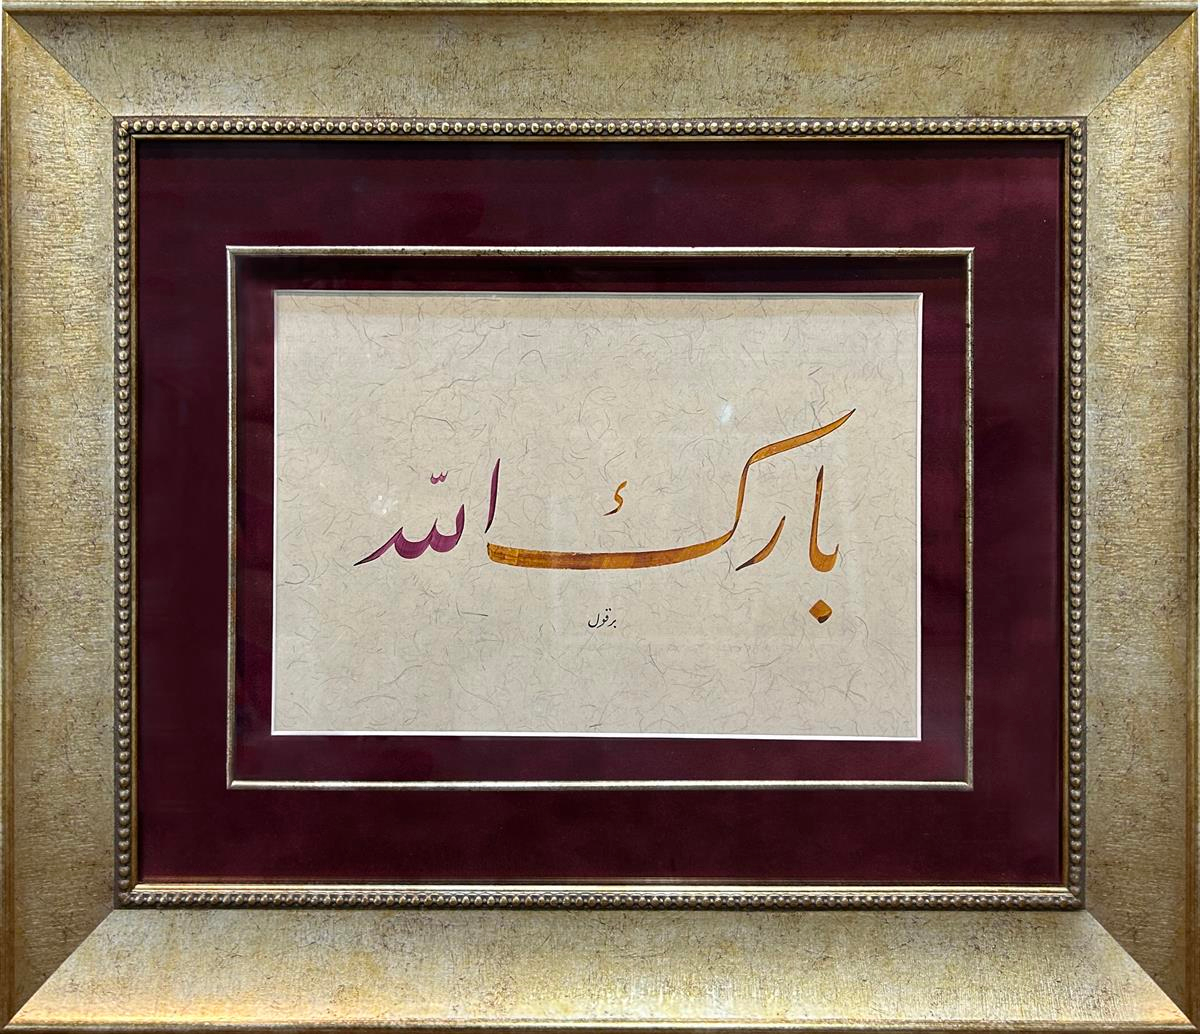 بارك الله
برقول